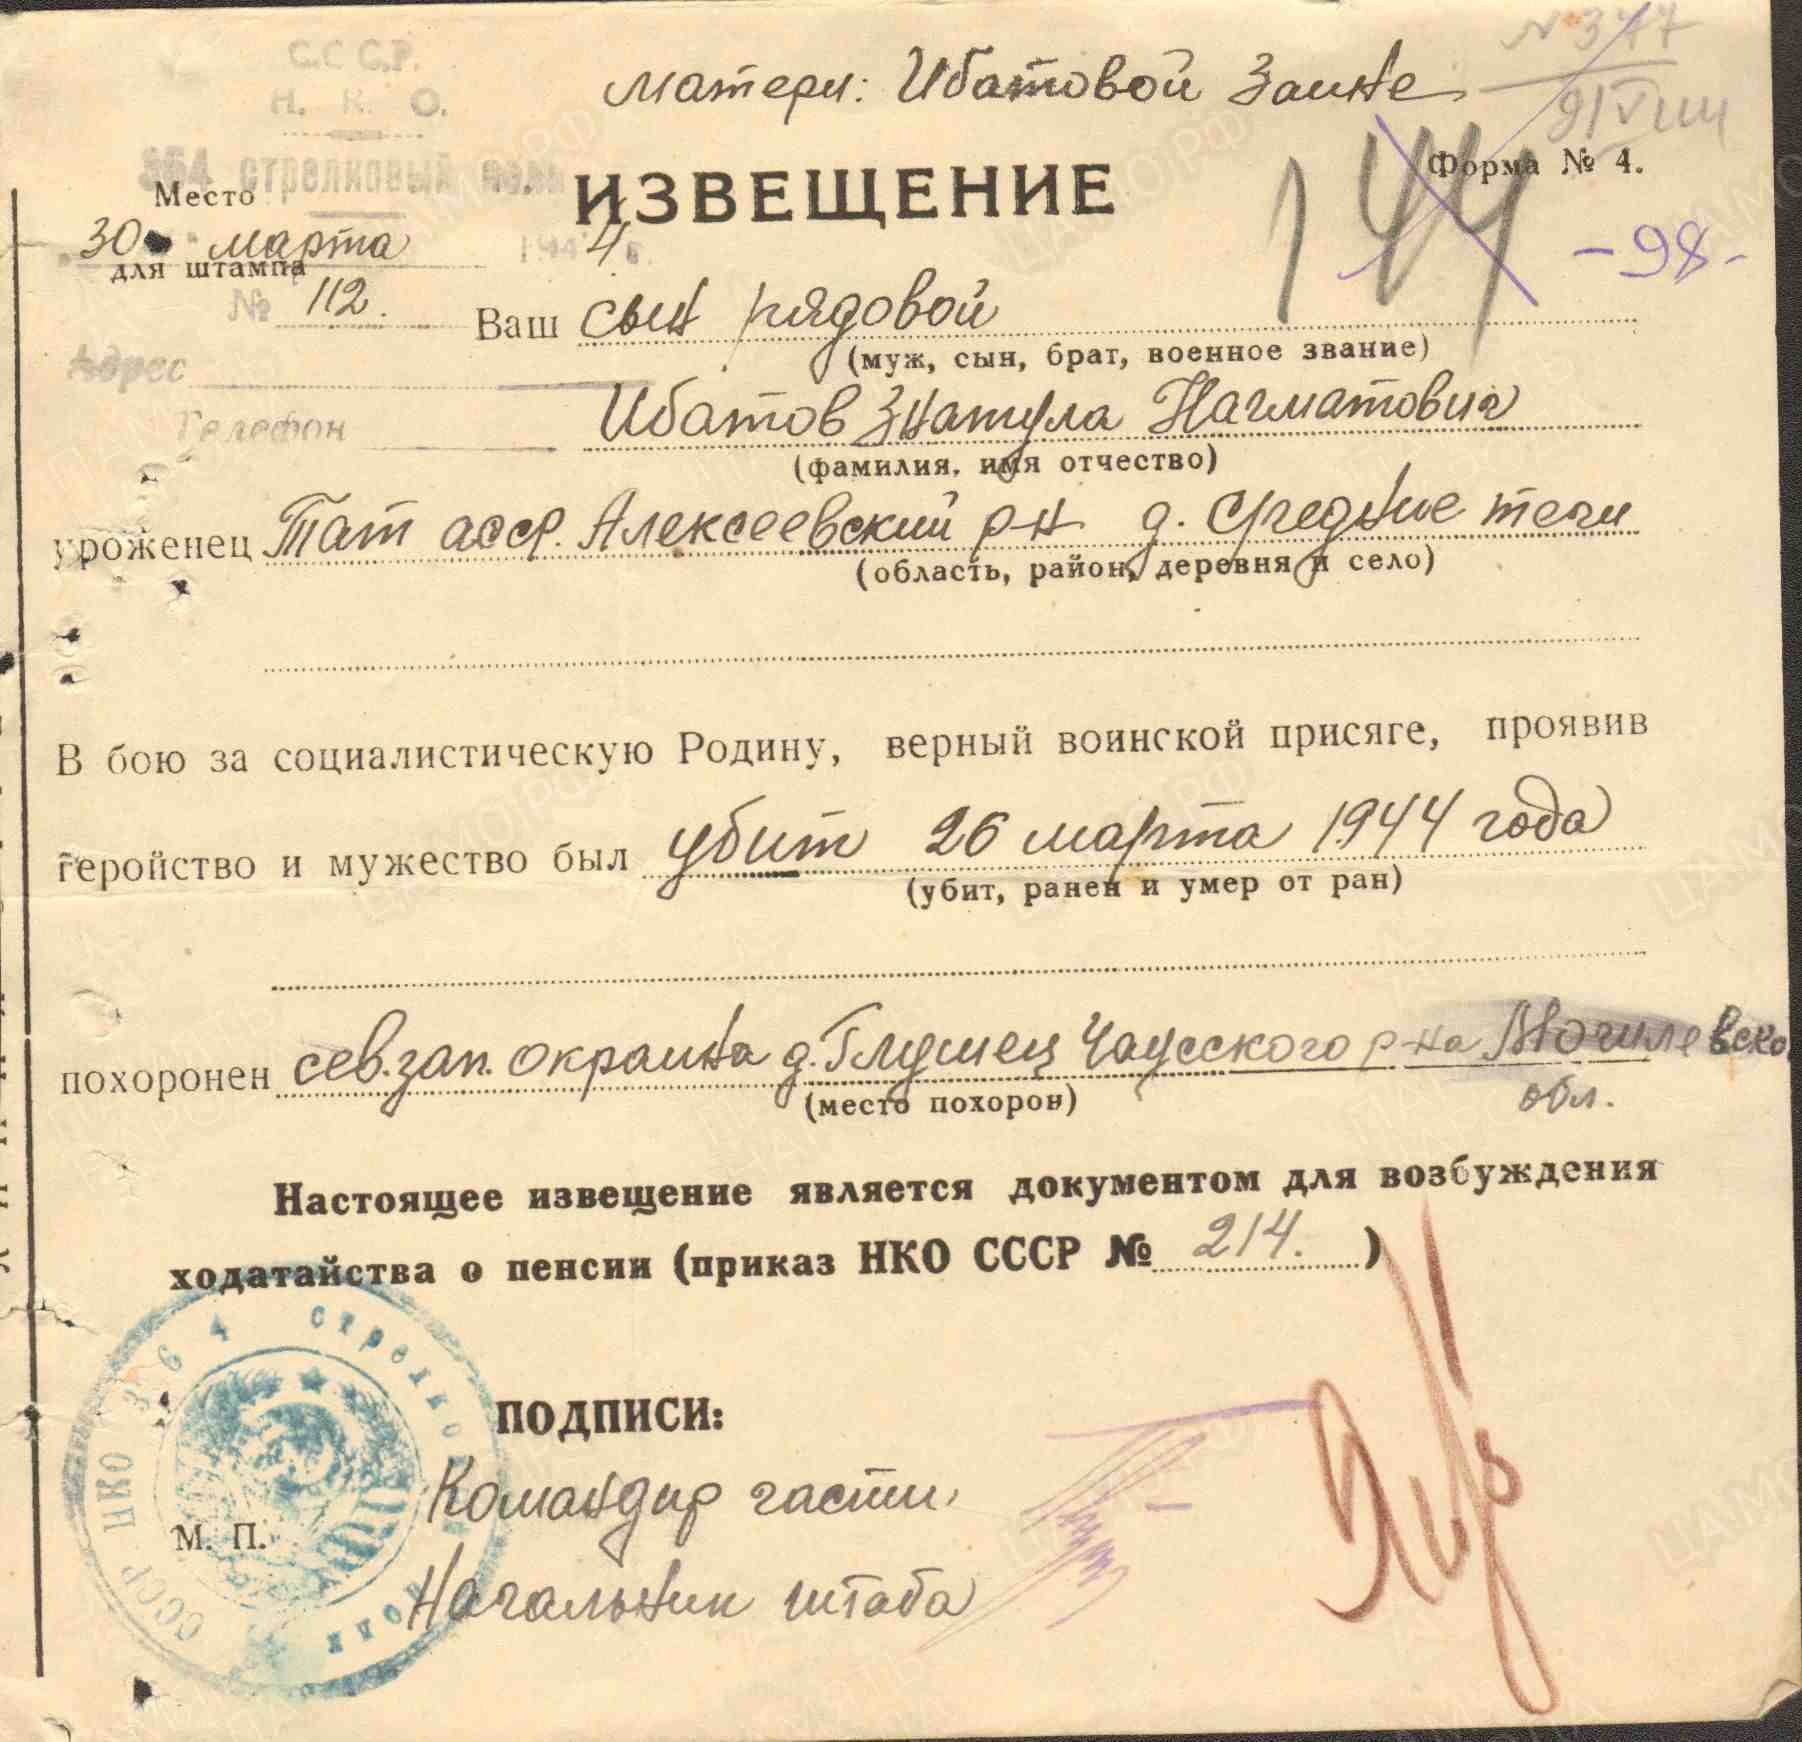 С.С.С.Р.
Н. К. О.
матери: Ибатовой Заине
№ 377
364 стрелковый полк
Место
ИЗВЕЩЕНИЕ
Форма № 4.
144
- 98 -
30 марта 1944 г.
для штампа
№ 112.
Ваш сын рядовой
(муж, сын, брат, военное звание)
Адрес
Ибатов Знатула Нагматович
Телефон
(фамилия, имя отчество)
уроженец Тат асср. Алексеевский р-н д. Средние тегли
(область, район, деревня и село)
В бою за социалистическую Родину, верный воинской присяге, проявив
геройство и мужество был убит 26 марта 1944 года
(убит, ранен и умер от ран)
похоронен сев.зап. окраина д. Глушец Чаусского р-на Могилевско
обл.
(место похорон)
Настоящее извещение является документом для возбуждения
ходатайства о пенсии (приказ НКО СССР № 214. )
СССР НКО 364 стрелковый полк
ПОДПИСИ:
Командир части
М. П.
Начальник штаба